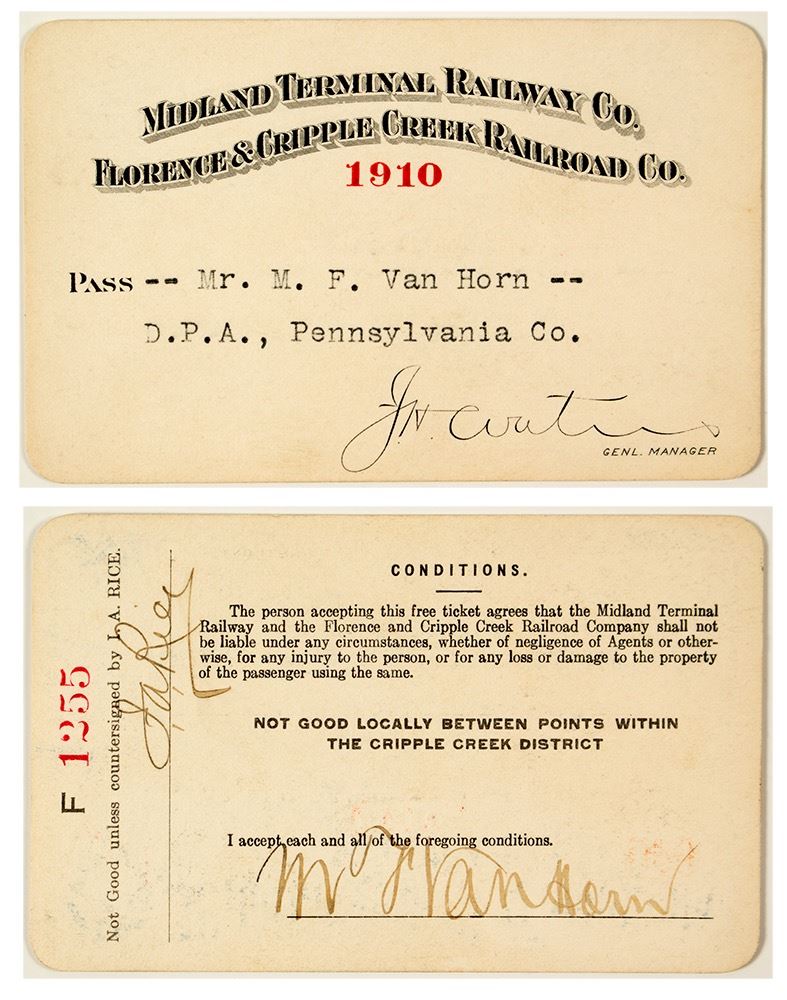 MIDLAND TERMINAL RAILWAY CO.
FLORENCE & CRIPPLE CREEK RAILROAD CO.
1910
PASS -- Mr. M. F. Van Horn --
D.P.A., Pennsylvania Co.
J.H. Waters
GENL. MANAGER
CONDITIONS.
The person accepting this free ticket agrees that the Midland Terminal
Railway and the Florence and Cripple Creek Railroad Company shall not
be liable under any circumstances, whether of negligence of Agents or other-
wise, for any injury to the person, or for any loss or damage to the property
of the passenger using the same.
NOT GOOD LOCALLY BETWEEN POINTS WITHIN
THE CRIPPLE CREEK DISTRICT
I accept each and all of the foregoing conditions.
M F Van Horn
F 1255
Not Good unless countersigned by L.A. RICE.
L A Rice